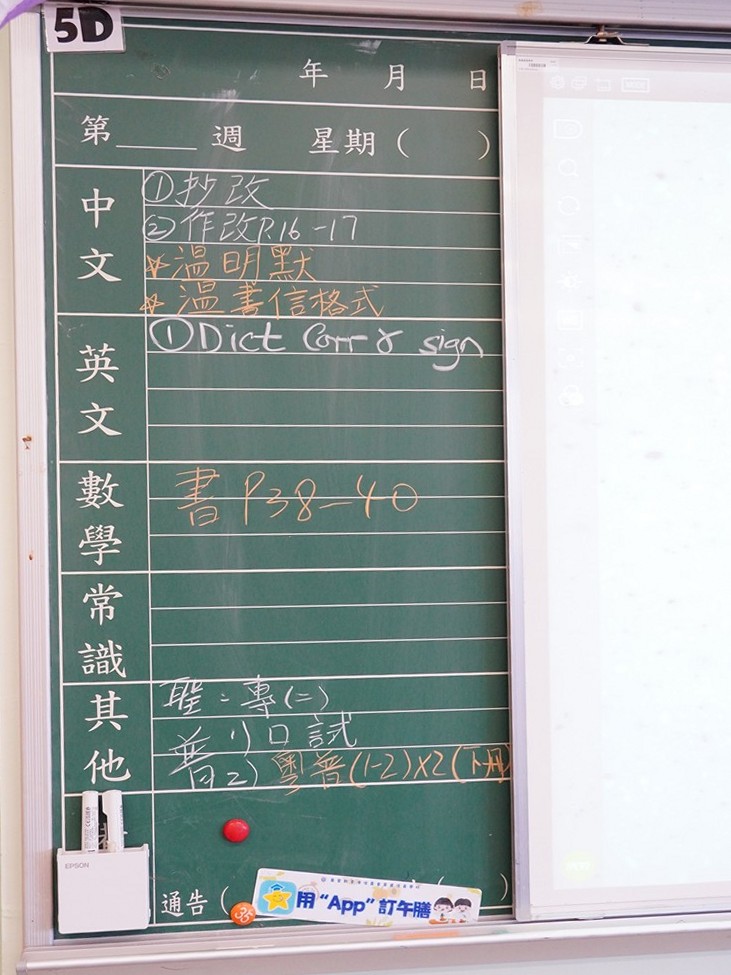 5D
年 月 日
第____週 星期( )
中文
①抄改
②作改P.16-17
*溫明默
*溫書信格式
英文
①Dict Corr & sign
數學
書 P38-40
常識
其他
聖:專(二)
普1)口試
2)粵普(1-2)x2(下冊)
EPSON
通告( )
35
用"App"訂午膳